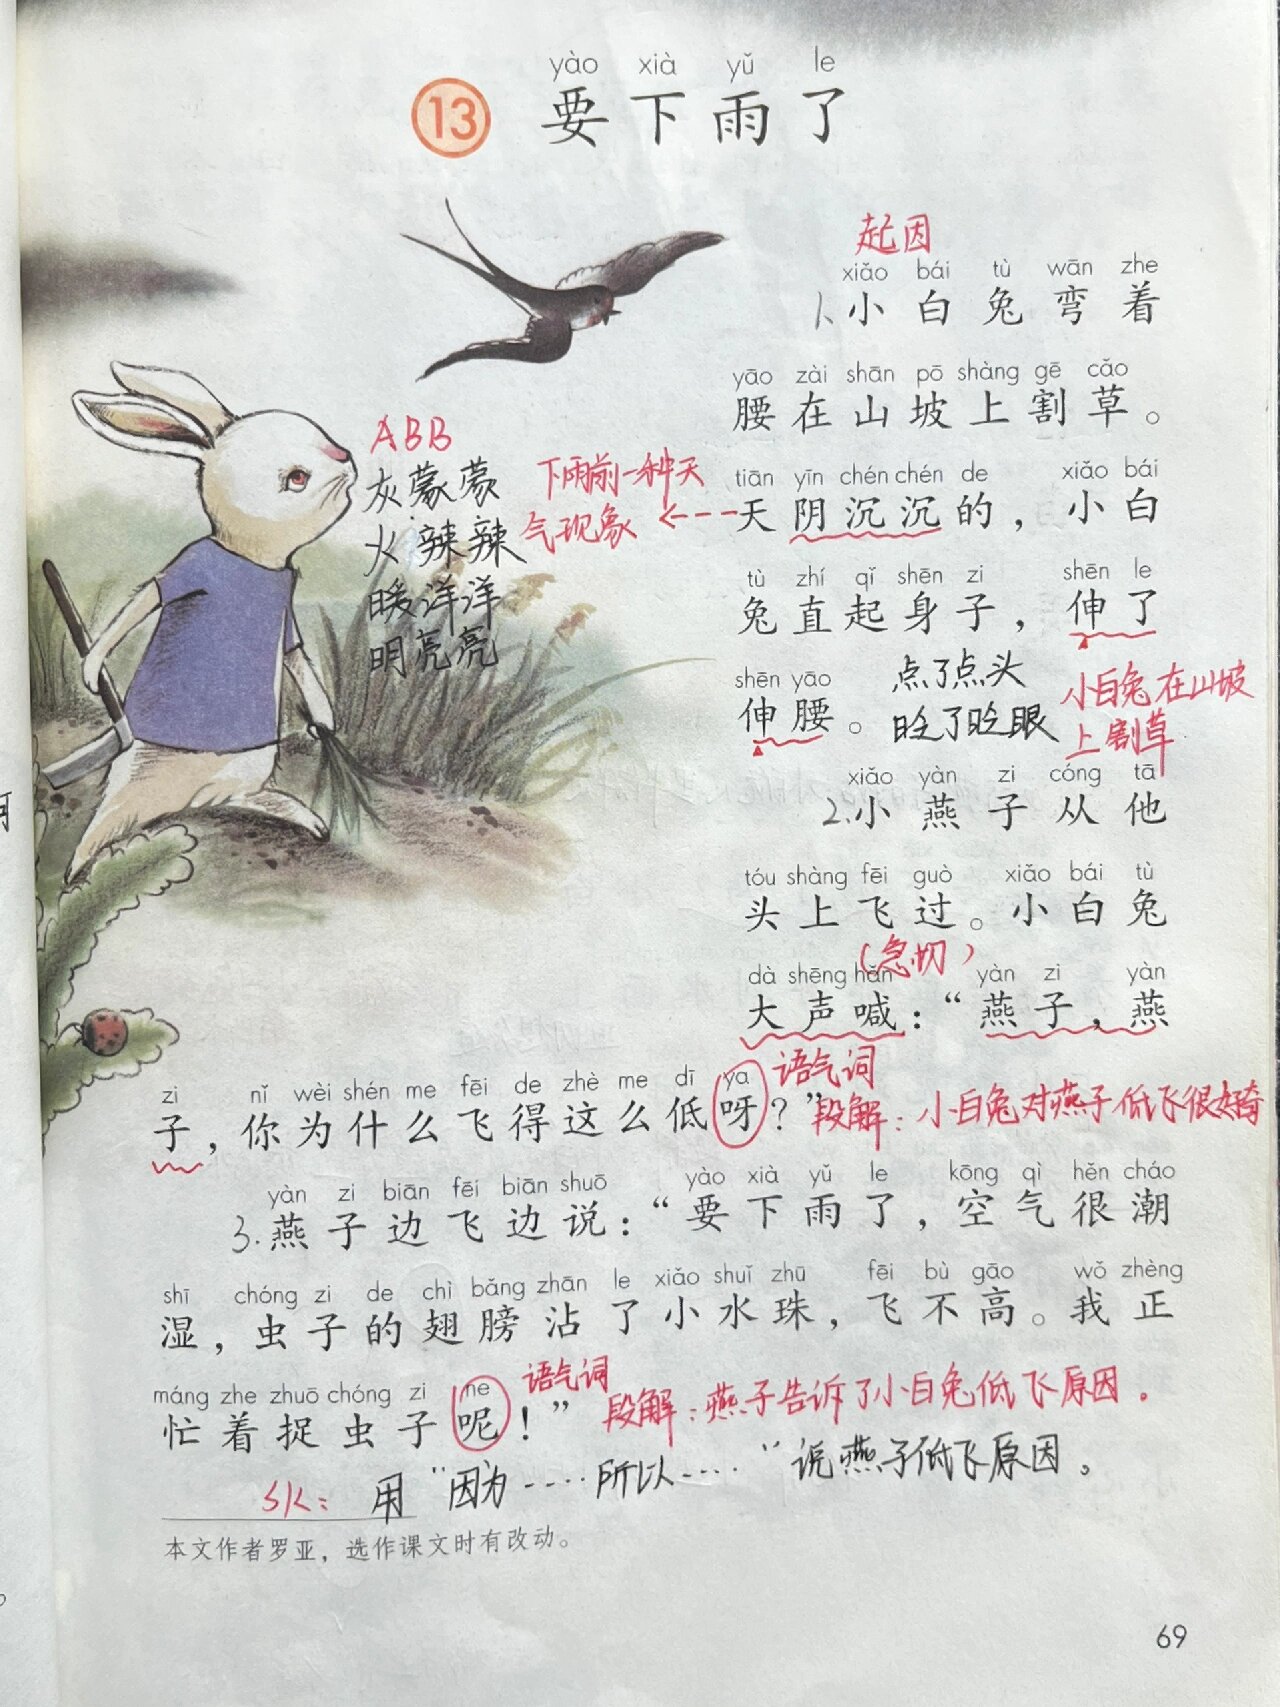 yào xià yǔ le
13 要下雨了
起因
xiǎo bái tù wān zhe
1.小白兔弯着
yāo zài shān pō shàng gē cǎo
腰在山坡上割草。
ABB
灰蒙蒙
火辣辣
暖洋洋
明亮亮
下雨前一种天
气现象
tiān yīn chén chén de xiǎo bái
天阴沉沉的，小白
tù zhí qǐ shēn zi shēn le
兔直起身子，伸了
shēn yāo
伸腰。
点了点头
眨了眨眼
小白兔在山坡
上割草
xiǎo yàn zi cóng tā
2.小燕子从他
tóu shàng fēi guò xiǎo bái tù
头上飞过。小白兔
(急切)
dà shēng hǎn yàn zi yàn
大声喊：“燕子，燕
语气词
zi nǐ wèi shén me fēi de zhè me dī ya
子，你为什么飞得这么低呀？”
段解：小白兔对燕子低飞很好奇
yàn zi biān fēi biān shuō yào xià yǔ le kōng qì hěn cháo
3.燕子边飞边说：“要下雨了，空气很潮
shī chóng zi de chì bǎng zhān le xiǎo shuǐ zhū fēi bù gāo wǒ zhèng
湿，虫子的翅膀沾了小水珠，飞不高。我正
语气词
máng zhe zhuō chóng zi ne
忙着捉虫子呢！”
段解：燕子告诉了小白兔低飞原因。
SK：用“因为……所以……”说燕子低飞原因。
本文作者罗亚，选作课文时有改动。
69